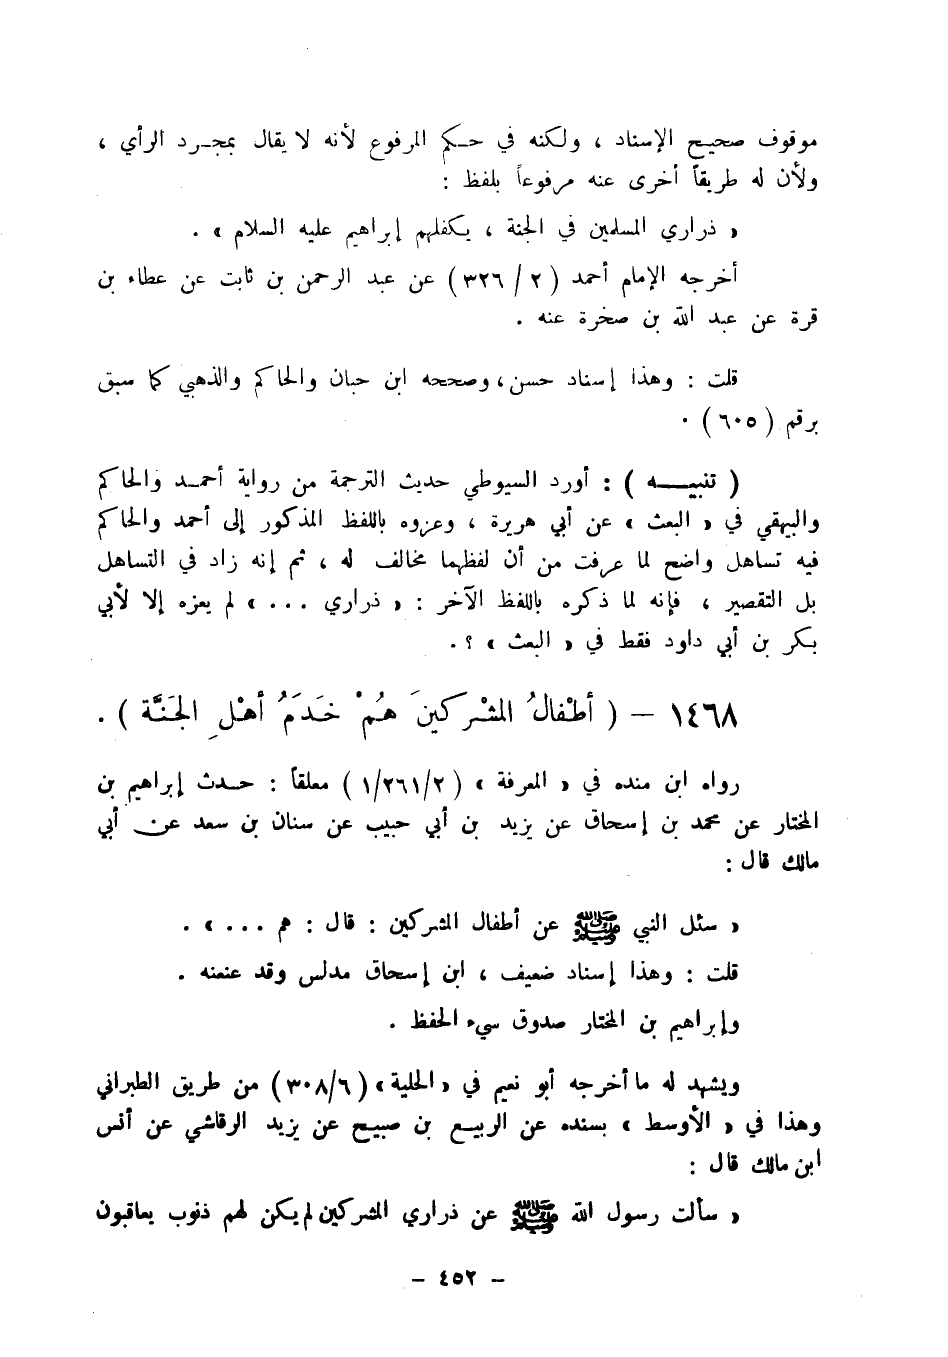 موقوف صحيح الإسناد ، ولكنه في حكم المرفوع لأنه لا يقال بمجرد الرأي ،
ولأن له طريقاً أخرى عنه مرفوعاً بلفظ :
« ذراري المسلمين في الجنة ، يكفلهم إبراهيم عليه السلام » .
أخرجه الإمام أحمد ( ٢ / ٣٢٦ ) عن عبد الرحمن بن ثابت عن عطاء بن
قرة عن عبد الله بن صخرة عنه .
قلت : وهذا إسناد حسن ، وصححه ابن حبان والحاكم والذهبي كما سبق
برقم ( ٦٠٥ ) .
( تنبيـــه ) : أورد السيوطي حديث الترجمة من رواية أحمد والحاكم
والبيهقي في « البعث » عن أبي هريرة ، وعزوه باللفظ المذكور إلى أحمد والحاكم
فيه تساهل واضح لما عرفت من أن لفظهما مخالف له ، ثم إنه زاد في التساهل
بل التقصير ، فإنه لما ذكره باللفظ الآخر : « ذراري ... » لم يعزه إلا لأبي
بكر بن أبي داود فقط في « البعث » ؟ .
١٤٦٨ – ( أطْفالُ المشْركينَ هُمْ خَدَمُ أهْلِ الجَنَّة ) .
رواه ابن منده في « المعرفة » ( ٢/٢٦١/١ ) معلقاً : حدث إبراهيم بن
المختار عن محمد بن إسحاق عن يزيد بن أبي حبيب عن سنان بن سعد عن أبي
مالك قال :
« سئل النبي ﷺ عن أطفال المشركين : قال : هم ... » .
قلت : وهذا إسناد ضعيف ، ابن إسحاق مدلس وقد عنعنه .
وإبراهيم بن المختار صدوق سيء الحفظ .
ويشهد له ما أخرجه أبو نعيم في « الحلية » ( ٦/٣٠٨ ) من طريق الطبراني
وهذا في « الأوسط » بسنده عن الربيع بن صبيح عن يزيد الرقاشي عن أنس
ابن مالك قال :
« سألت رسول الله ﷺ عن ذراري المشركين لم يكن لهم ذنوب يعاقبون
– ٤٥٢ –